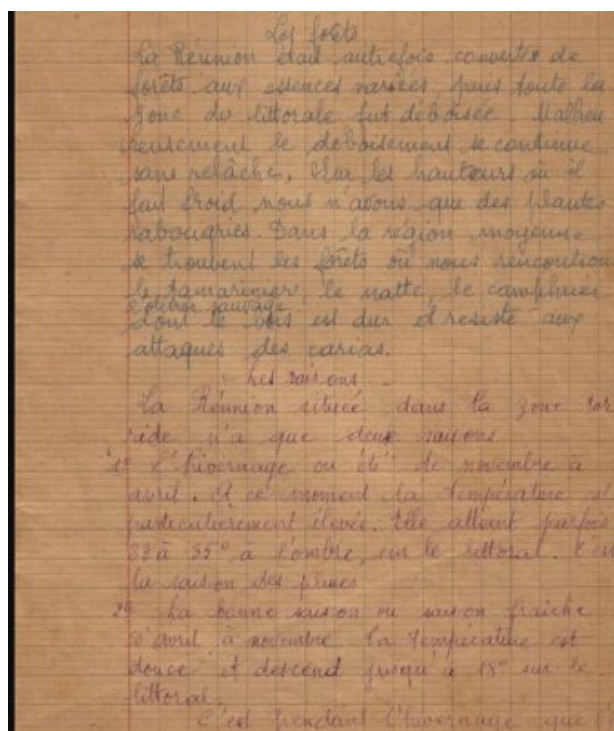 Les forêts
La Réunion était autrefois couverte de
forêts aux essences variées, puis toute la
zone du littorale fut déboisée. Malheu
reusement le déboisement se continue
sans relâche. Sur les hauteurs où il
fait froid nous n'avons que des plantes
rabougries. Dans la région moyenne
se trouvent les forêts où nous rencontrons
le tamarinier, le natte, le camphrier
l'olivier sauvage
dont le bois est dur et résiste aux
attaques des carias.
Les saisons
La Réunion située dans la zone tor
ride n'a que deux saisons
1º L'hivernage ou été de novembre à
avril. A ce moment la température est
particulièrement élevée. Elle atteint parfois
à 35º à l'ombre, sur le littoral. C'est
la saison des pluies
2º La bonne saison ou saison fraîche
d'avril à novembre La température est
douce et descend jusqu'à 18º sur le
littoral.
C'est pendant l'hivernage que l'